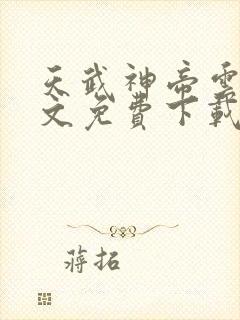 天武神帝雲
文免費下載
蔣拓